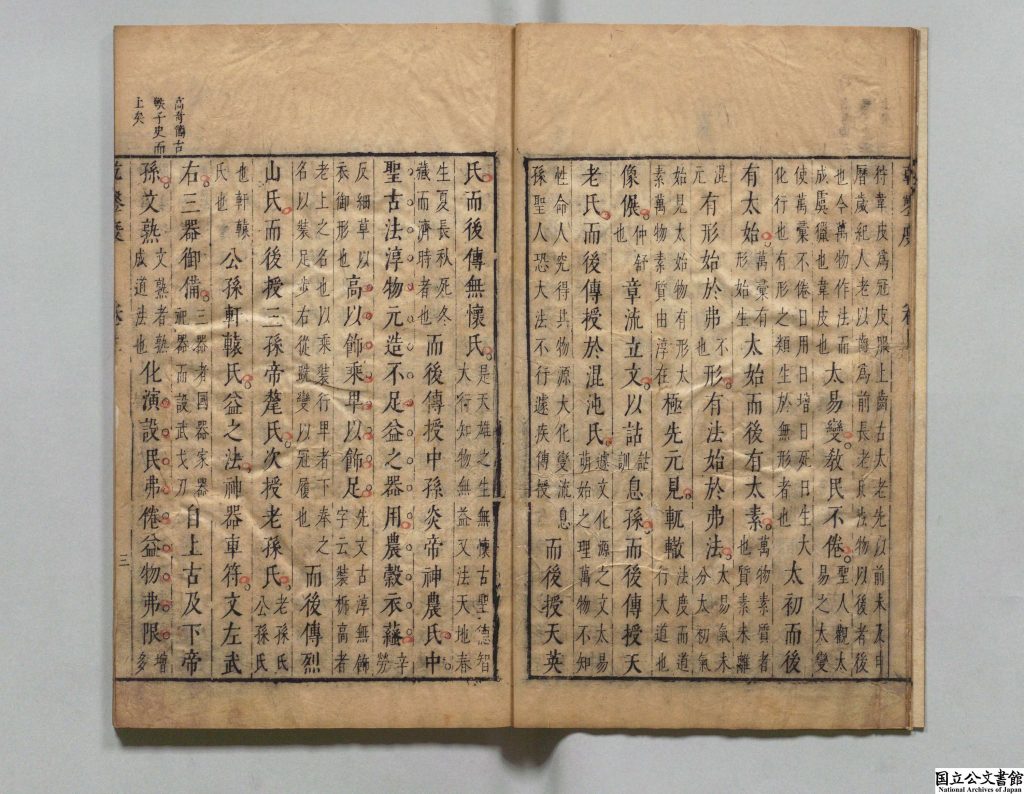 符韋皮為冠皮服上齒古太老先以前未及甲
曆歲紀人老以齒為前長老氏法物以後者後
也今萬物作法而
成虞獵也韋皮也
太易變教民不倦
聖人觀太
易之太變
使萬彙不倦日用日增日死日生大
化行也有形之類生於無形者也
太初而後
有太始
萬彙有
形始生
太始而後有太素
萬物素質者
也質素未離
混
元
有形始於弗
不
也
形有法始於弗法
太易氣未
分太初氣
始見太始物有形太
素萬物素質由淳在
極先元見軏轍
法度而道
行大道也
像偃
仲舒
也
章流立文以詁
詁
訓
息孫而後傳授天
老氏而後傳授於混沌氏
遽文化源之文太易
萌始之理萬物不知
牲命人究得其物源大化變流息
孫聖人恐大法不行遽疾傳授
而後授天英
高奇簡古
軼子史而
上矣
氏而後傳無懷氏
是天雄之生無懷古聖德智
大行知物無益又法天地春
生夏長秋死冬
藏而濟時者也
而後傳授中孫炎帝神農氏中
聖古法淳物元造不足益之器用農穀衣
辛
勞
反細草以
衣御形也
高以飾乘卑以飾足
先文古淳無飾
字云裝高者
老上之名也以乘裝行卑者下奉之
名以裝足步右從蹤變以冠履也
而後傳烈
山氏而後授三孫帝釐氏次授老孫氏
老孫氏
公孫氏
也軒轅
氏也
公孫軒轅氏益之法神器車符文左武
右三器御備
三器者國器家器
祀器而設武戈刀
自上古及下帝
孫文熟
文熟者熟
成道法也
化演設民弗倦益物弗限
增
多
三
国立公文書館
National Archives of Japan